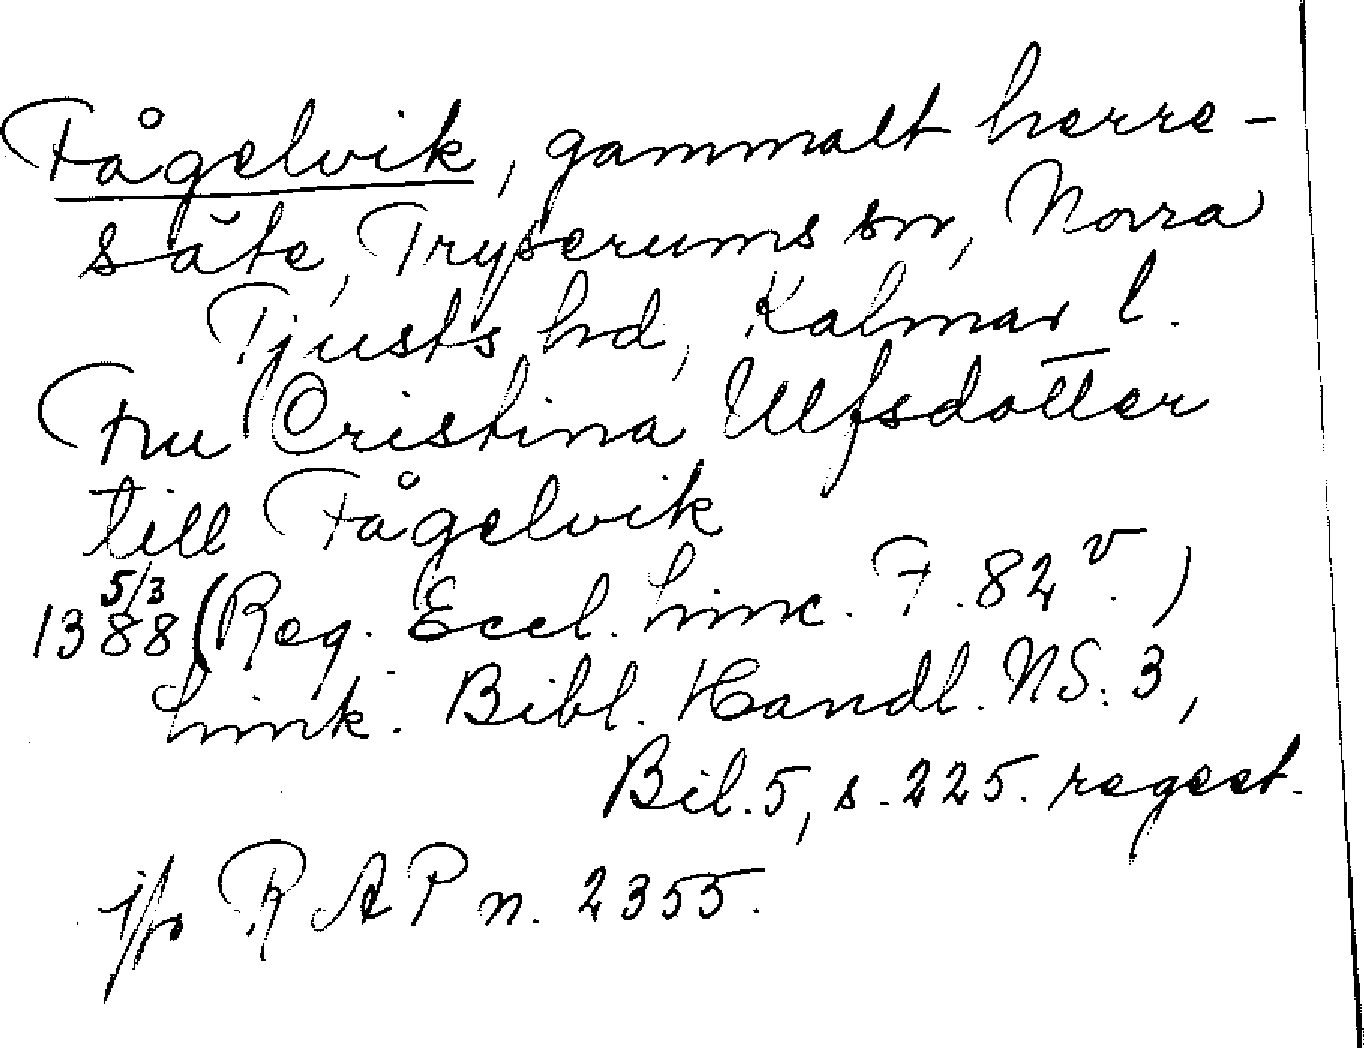 Fågelvik, gammalt herre-
säte, Tryserums sn, Norra
Tjusts hd, Kalmar l.
Fru Cristina Ulfsdotter
till Fågelvik
1388 5/3 (Reg. Eccl. Linc. F. 82 v.)
Link. Bibl. Handl. NS. 3,
Bil. 5, s. 225. regest.
RAP n. 2355.